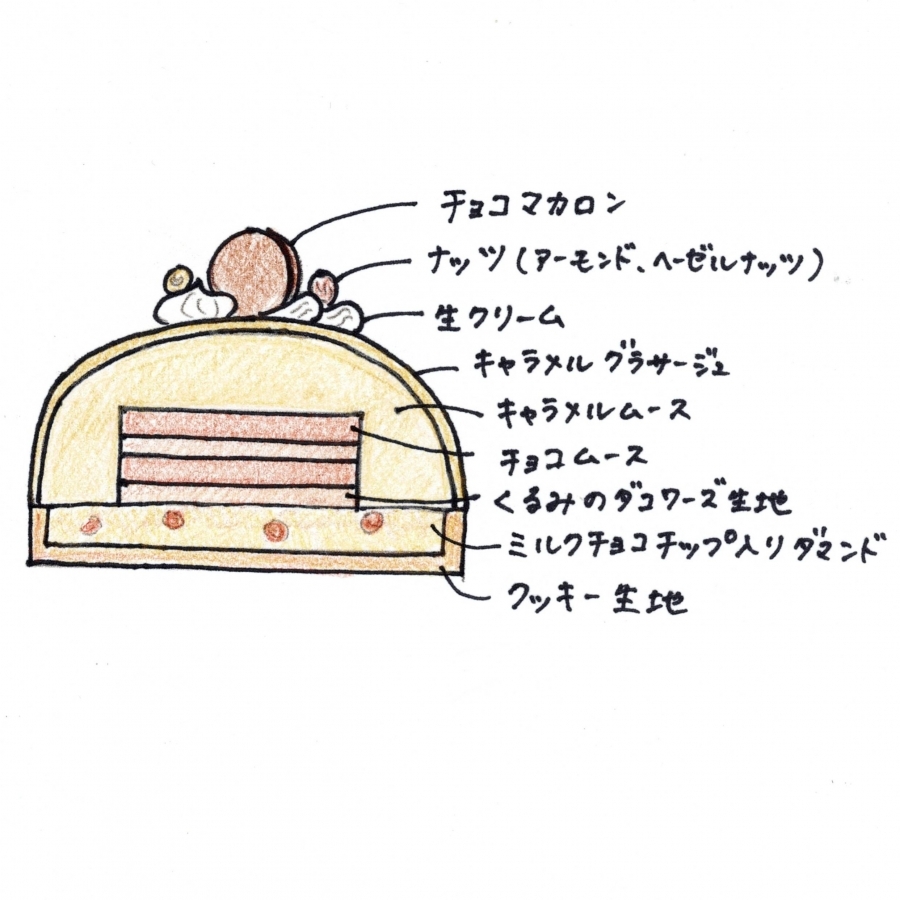 チョコマカロン
ナッツ(アーモンド、ヘーゼルナッツ)
生クリーム
キャラメルグラサージュ
キャラメルムース
チョコムース
くるみのダコワーズ生地
ミルクチョコチップ入りダマンド
クッキー生地